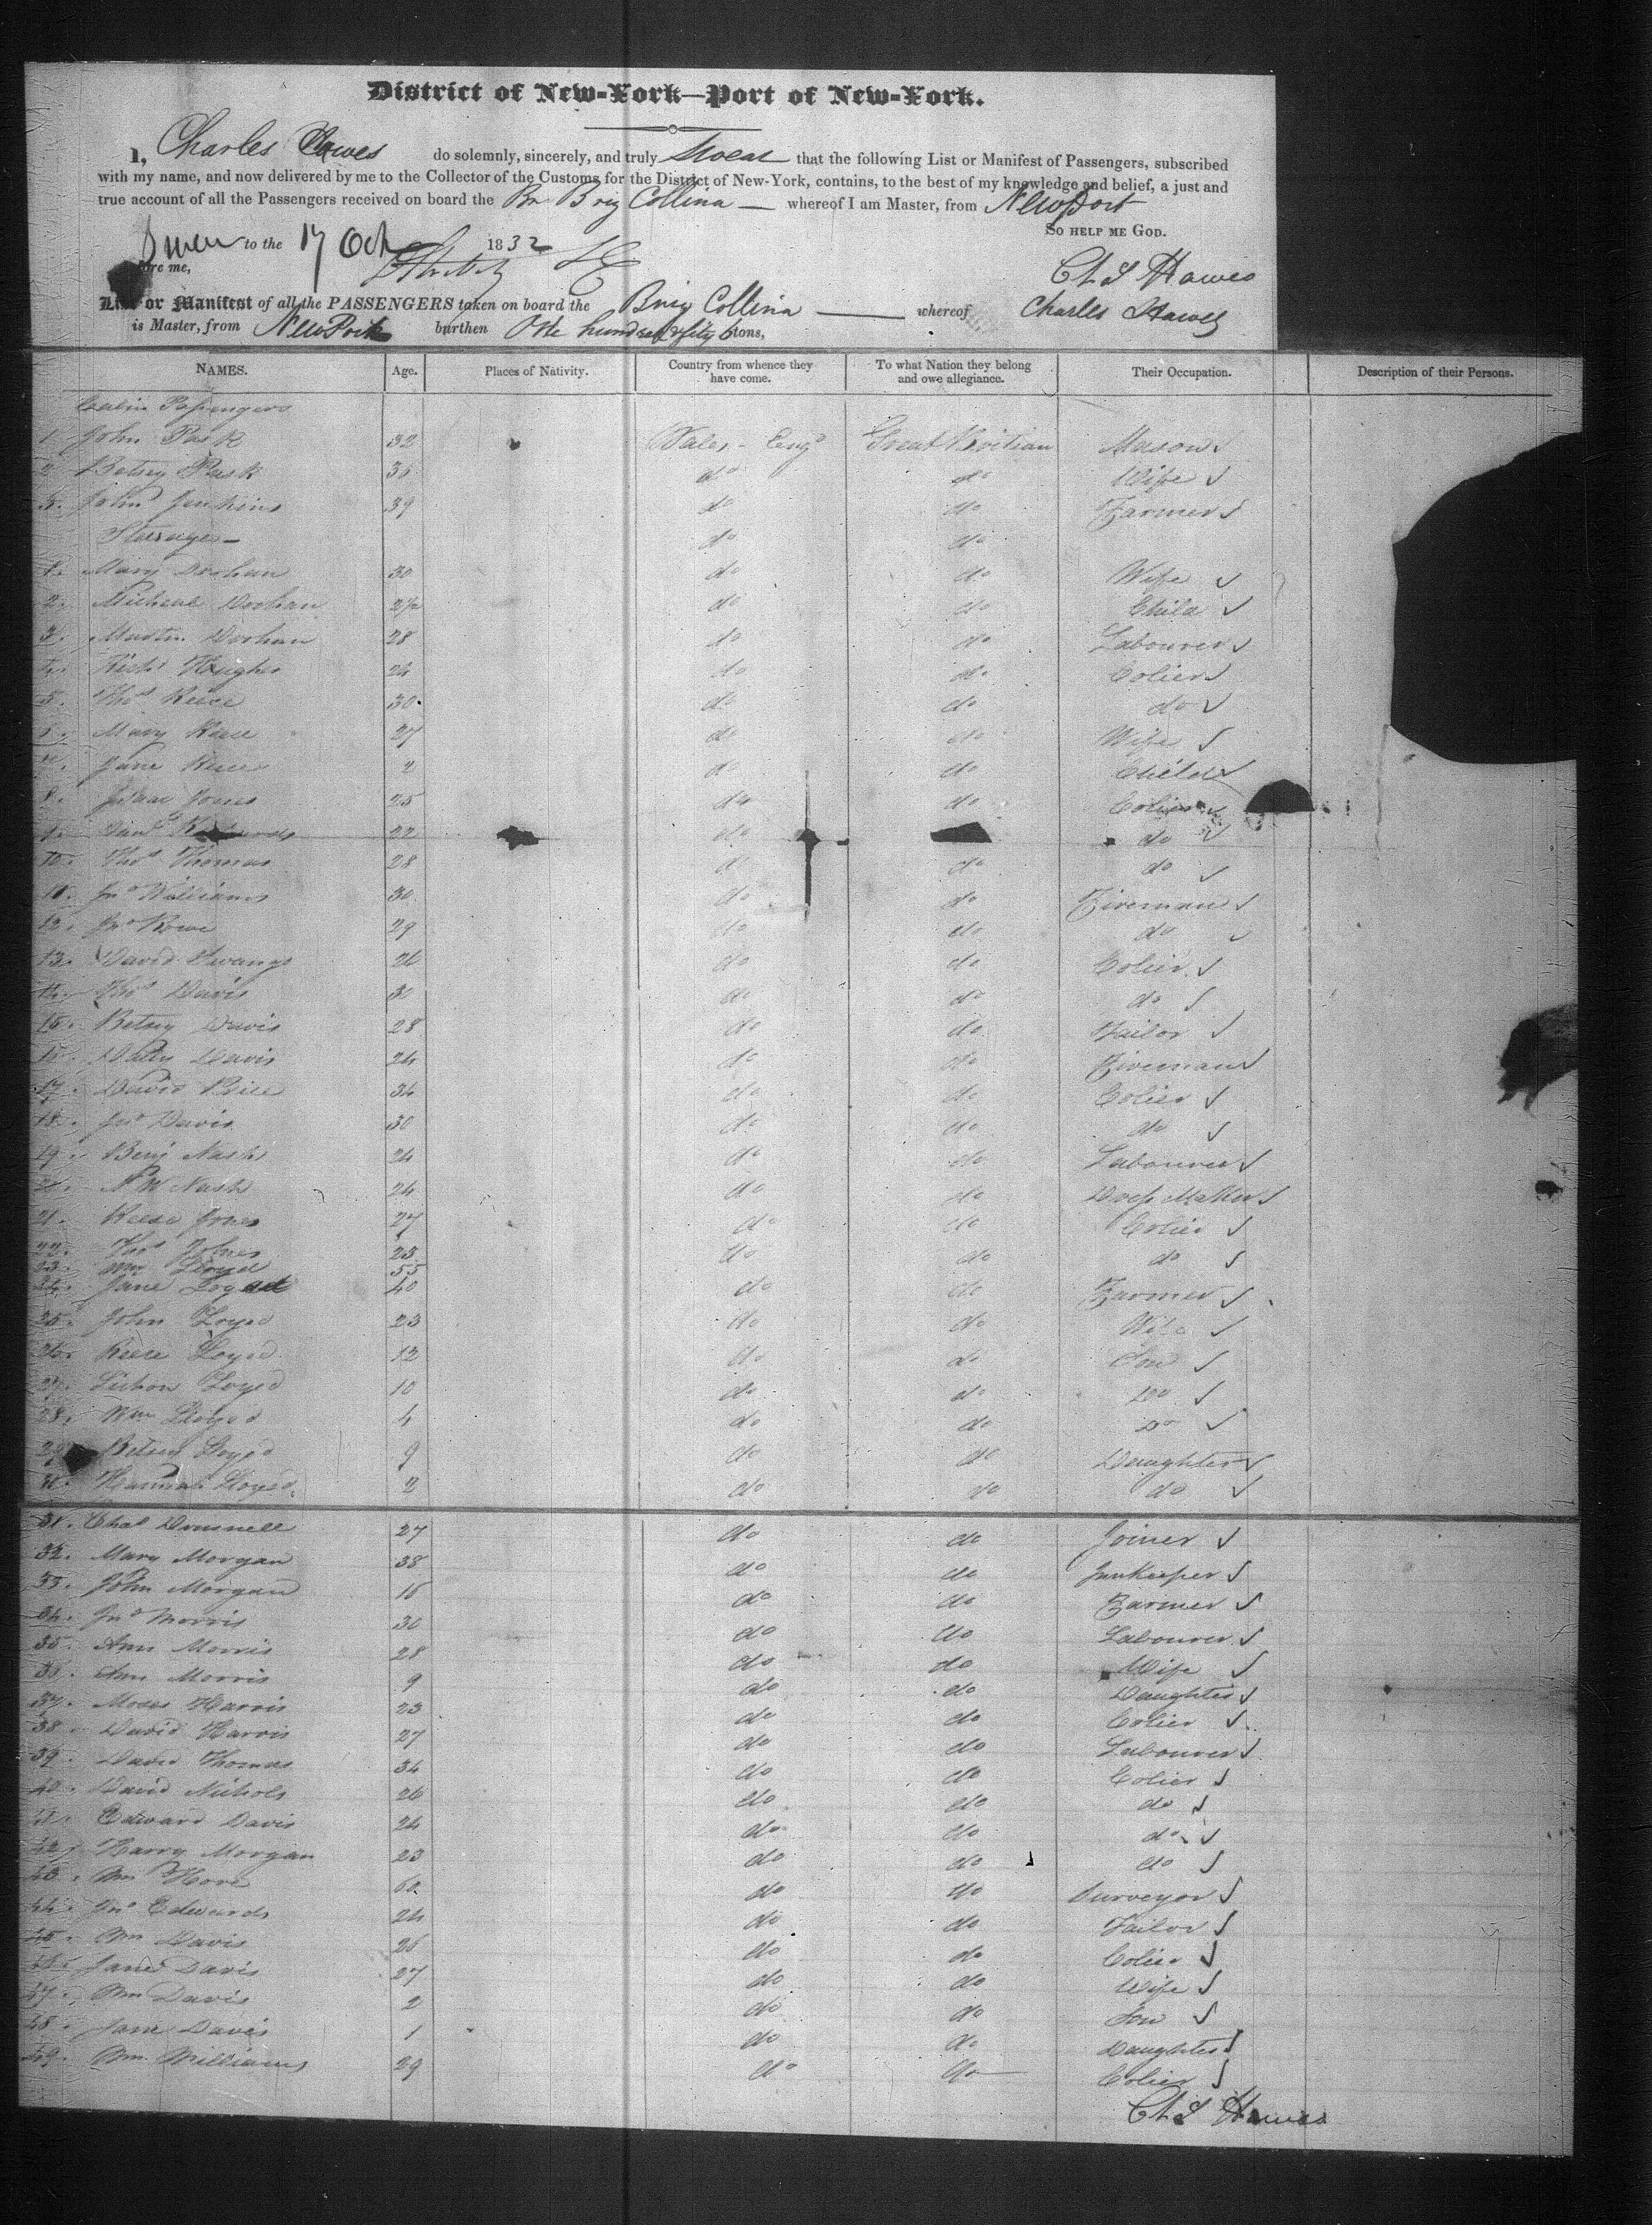 District of New-York—Port of New-York.
I, Charles Hawes do solemnly, sincerely, and truly Swear that the following List or Manifest of Passengers, subscribed
with my name, and now delivered by me to the Collector of the Customs for the District of New-York, contains, to the best of my knowledge and belief, a just and
true account of all the Passengers received on board the Br Brig Collina — whereof I am Master, from NewPort
So help me God.
Sworn to the 17 Oct 1832
fore me,
Chs Hawes
List or Manifest of all the PASSENGERS taken on board the Brig Collina — whereof Charles Hawes
is Master, from NewPort burthen One hundred & fifty 6 tons,
NAMES. Age. Places of Nativity. Country from whence they have come. To what Nation they belong and owe allegiance. Their Occupation. Description of their Persons.
Cabin Passengers
1 John Pask 32 Wales - Engd Great Britian Mason
2 Betsey Pask 35 do do Wife
3. John Jenkins 39 do do Farmer
Steerage — do do
1. Mary Dorhan 30 do do Wife
2. Micheal Dorhan 2½ do do Child
3. Martin Dorhan 28 do do Labourer
4. Richd Hughes 24 do do Colier
5. Thos Reese 30 do do do
6. Mary Reese 27 do do Wife
7. Jane Reese 2 do do Child
8. Isaac Jones 25 do do Colier
9. 22 do do
10. Thos Thomas 28 do do do
11. Jno Williams 30 do do Fireman
12. Jno Rowe 29 do do do
13. David 26 do do Colier
14. Thos Davis 30 do do do
15. Betsey Davis 28 do do Tailor
16. Davis 24 do do Fireman
17. David Rice 34 do do Colier
18. Jno Davis 30 do do do
19. Benj Nash 24 do do Labourer
20. Nash 24 do do Dress Maker
21. Reese Jones 27 do do Colier
22. Thos Jones 23 do do do
23. Wm Lloyd 55
24. Jane Loyed 40 do do Farmer
25. John Loyed 23 do do Wife
26. Reese Loyed 12 do do Son
27. Loyed 10 do do Do
28. Wm Lloyed 4 do do Do
29. Betsey Loyed 9 do do Daughter
30. Hannah Lloyed 2 do do do
31. Chas 27 do do Joiner
32. Mary Morgan 38 do do Innkeeper
33. John Morgan 16 do do Farmer
34. Jno Morris 30 do do Labourer
35. Ann Morris 28 do do Wife
36. Ann Morris 9 do do Daughter
37. Moses Harris 23 do do Colier
38. David Harris 27 do do Labourer
39. David Thomas 34 do do Colier
40. David Nichols 26 do do do
41. Edward Davis 24 do do do
42. Harry Morgan 23 do do do
43. Wm Hore 60 do do Surveyor
44. Jno Edwards 24 do do Tailor
45. Wm Davis 26 do do Colier
46. Jane Davis 27 do do Wife
47. Wm Davis 2 do do Son
48. Jane Davis 1 do do Daughter
49. Wm. Williams 29 do do Colier
Chs Hawes